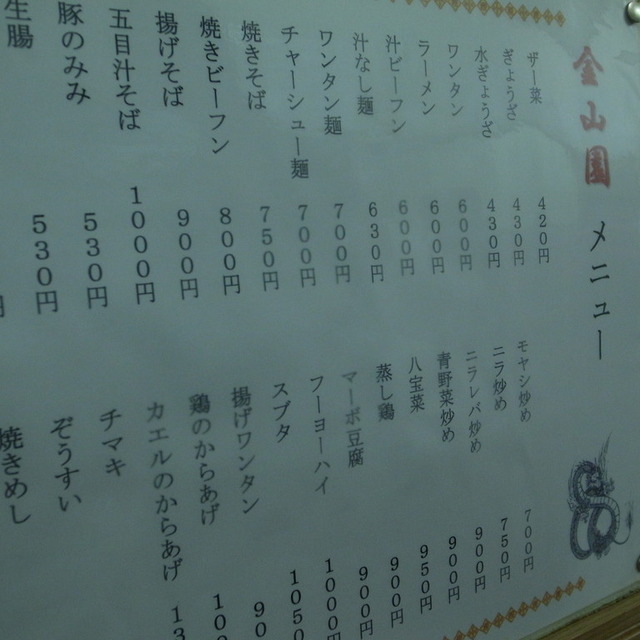 金山園 メニュー
ザー菜 420円
ぎょうざ 430円
水ぎょうざ 430円
ワンタン 600円
ラーメン 600円
汁ビーフン 600円
汁なし麺 630円
ワンタン麺 700円
チャーシュー麺 700円
焼きそば 750円
焼きビーフン 800円
揚げそば 900円
五目汁そば 1000円
豚のみみ 530円
生腸 530円
円
モヤシ炒め 700円
ニラ炒め 750円
ニラレバ炒め 900円
青野菜炒め 900円
八宝菜 950円
蒸し鶏 900円
マーボ豆腐 900円
フーヨーハイ 1000円
スブタ 1050円
揚げワンタン 90
鶏のからあげ 10
カエルのからあげ 13
チマキ
ぞうすい
焼きめし